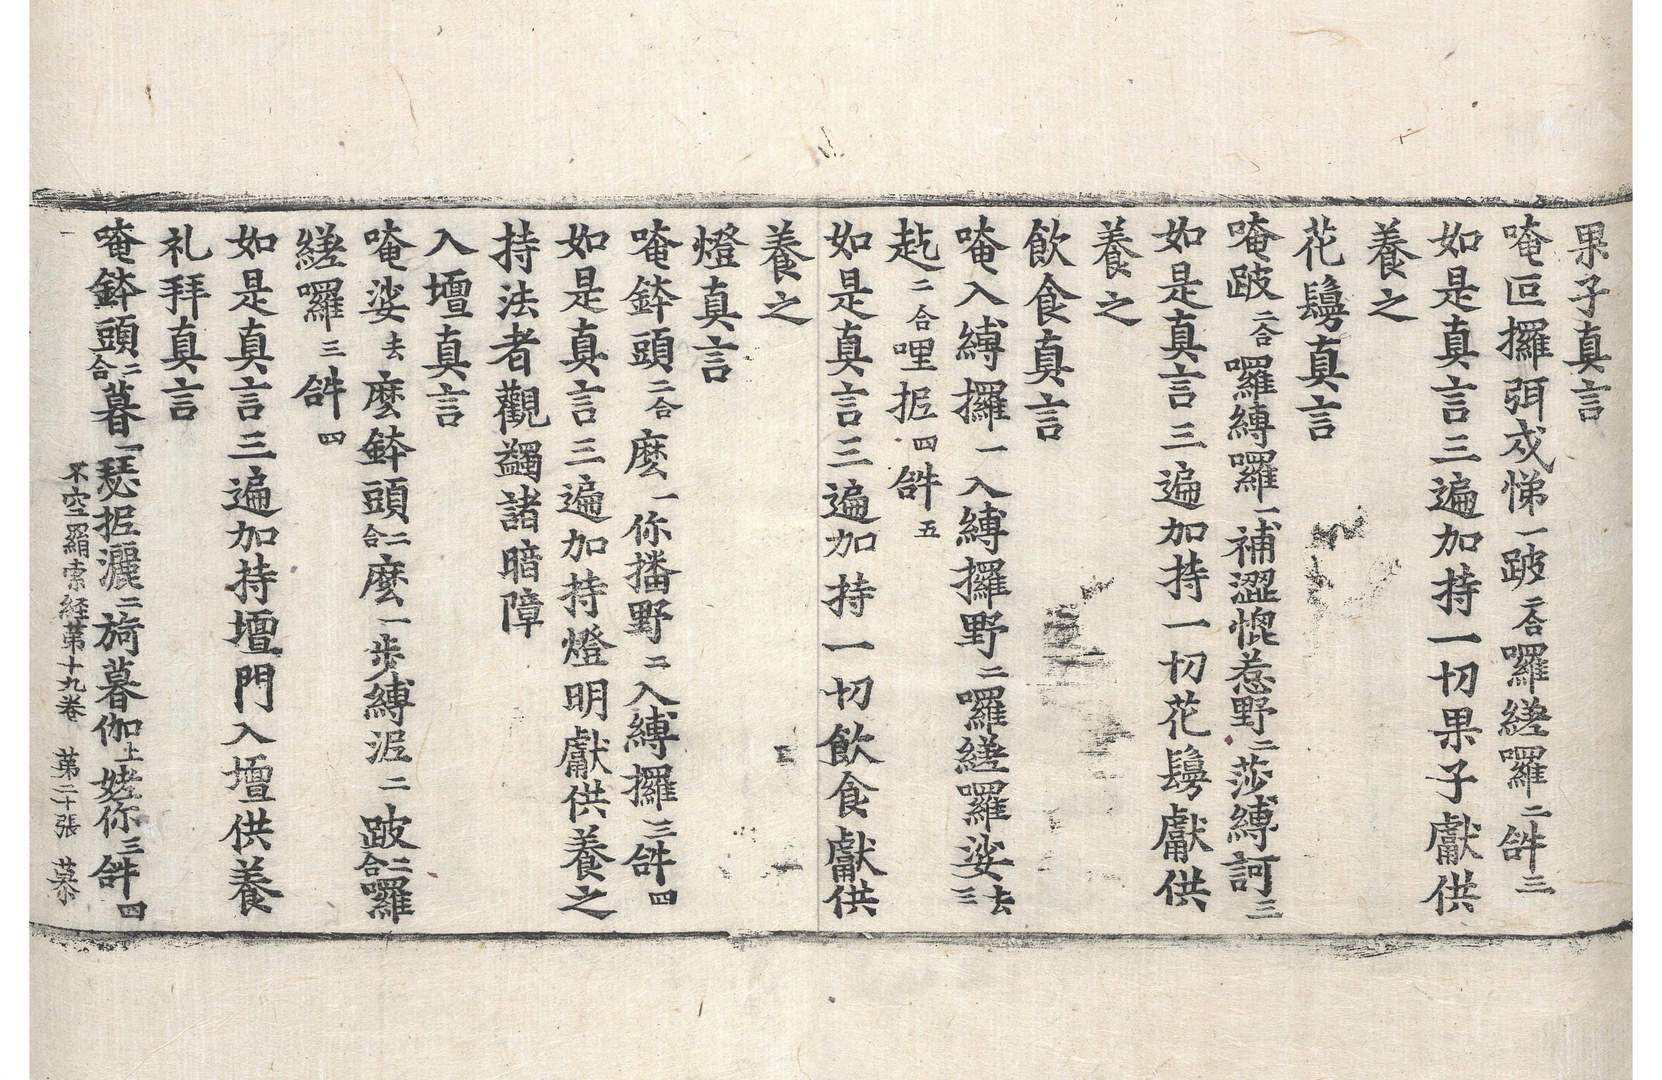 果子真言
唵叵攞弭戍悌一跛二合囉縒囉二𤙖三
如是真言三遍加持一切果子獻供
養之
花鬘真言
唵跛二合囉縛囉一補澀惃惹野二莎縛訶三
如是真言三遍加持一切花鬘獻供
養之
飲食真言
唵入縛攞一入縛攞野二囉縒囉娑去三
訖二合哩抳四𤙖五
如是真言三遍加持一切飲食獻供
養之
燈真言
唵鉢頭二合麼一你播野二入縛攞三𤙖四
如是真言三遍加持燈明獻供養之
持法者觀蠲諸暗障
入壇真言
唵娑去麼鉢頭二合麼一步縛泥二跛二合囉
縒囉三𤙖四
如是真言三遍加持壇門入壇供養
礼拜真言
唵鉢頭二合暮一瑟抳灑二旖暮伽上㛐你三𤙖四
不空羂索経第十九巻 第二十張 慕